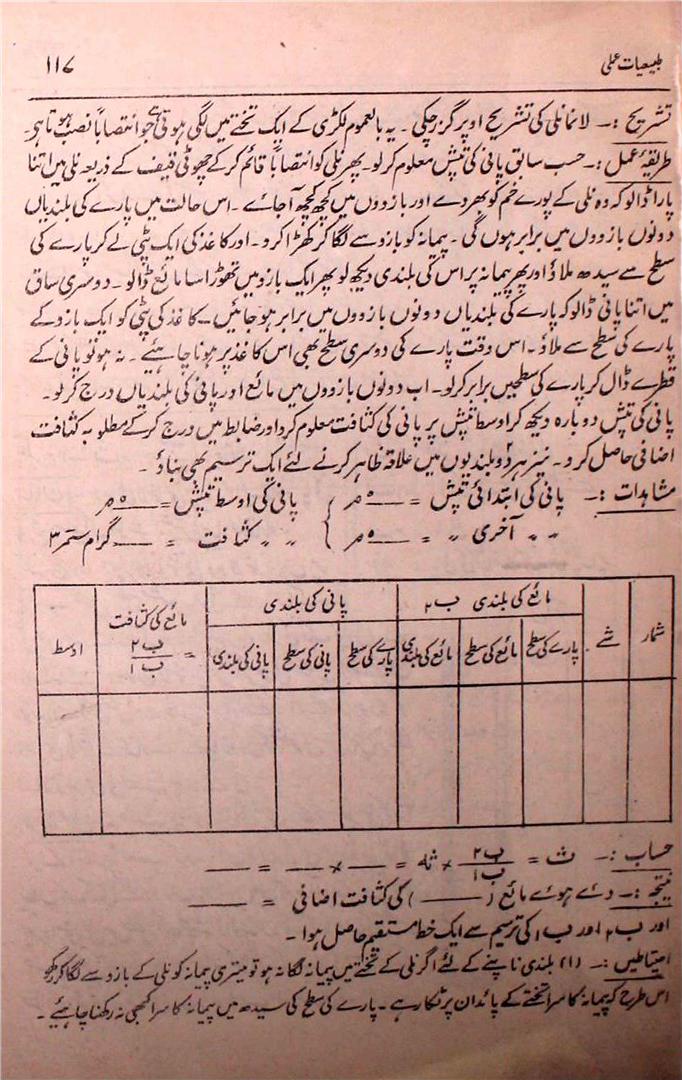 طبیعیات عملی
۱۱۷
تشریح :۔ لانمانلی کی تشریح اوپر گزر چکی ۔ یہ بالعموم لکڑی کے ایک تختے میں لگی ہوتی ہے جو انتصاباً نصب ہوتا ہی۔
طریقۂ عمل :۔ حسب سابق پانی کی تپش معلوم کرلو۔ پھر نلی کو انتصاباً قائم کرکے چھوٹی قیف کے ذریعہ نلی میں اتنا
پارا ڈالو کہ وہ نلی کے پورے خم کو بھر دے اور بازووں میں کچھ کچھ آجائے ۔ اس حالت میں پارے کی بلندیاں
دونوں بازووں میں برابر ہوں گی ۔ پیمانہ کو بازو سے لگا کر کھڑا کرو ۔ اور کاغذ کی ایک پٹی لے کر پارے کی
سطح سے سیدھ ملاؤ اور پھر پیمانہ پر اس کی بلندی دیکھ لو پھر ایک بازو میں تھوڑا سا مائع ڈالو ۔ دوسری ساق
میں اتنا پانی ڈالو کہ پارے کی بلندیاں دونوں بازووں میں برابر ہو جائیں ۔ کاغذ کی پٹی کو ایک بازو کے
پارے کی سطح سے ملاؤ ۔ اس وقت پارے کی دوسری سطح بھی اس کاغذ پر ہونا چاہئیے ۔ نہ ہو تو پانی کے
قطرے ڈال کر پارے کی سطحیں برابر کرلو ۔ اب دونوں بازووں میں مائع اور پانی کی بلندیاں درج کرلو ۔
پانی کی تپش دوبارہ دیکھ کر اوسط تپش پر پانی کی کثافت معلوم کرو اور ضابطہ میں درج کرکے مطلوبہ کثافت
اضافی حاصل کرو ۔ نیز ہر دو بلندیوں میں علاقہ ظاہر کرنے کے لئے ایک ترسیم بھی بناؤ ۔
مشاہدات :۔ پانی کی ابتدائی تپش = ــــ °مر } پانی کی اوسط تپش = ــــ °مر
〃 〃 آخری 〃 = ــــ °مر } 〃 〃 کثافت = ــــ گرام سمر۳
شمار | شے | مائع کی بلندی ب۲ | پانی کی بلندی | مائع کی کثافت = ب۲/ب۱ | اوسط
پارے کی سطح | مائع کی سطح | مائع کی بلندی | پارے کی سطح | پانی کی سطح | پانی کی بلندی
حساب :۔ ث = ب۲/ب۱ × ثہ = ــــ × ــــ = ــــ
نتیجہ :۔ دئے ہوئے مائع ( ــــ ) کی کثافت اضافی = ــــ
اور ب۲ اور ب۱ کی ترسیم سے ایک خط مستقیم حاصل ہوا ۔
احتیاطیں :۔ (۱) بلندی ناپنے کے لئے اگر نلی کے تختے میں پیمانہ لگا نہ ہو تو میتری پیمانہ کو نلی کے بازو سے لگا کر رکھو
اس طرح کہ پیمانہ کا سرا تختے کے پائدان پر ٹکا رہے ۔ پارے کی سطح کی سیدھ میں پیمانہ کا سرا کبھی نہ رکھنا چاہئیے ۔